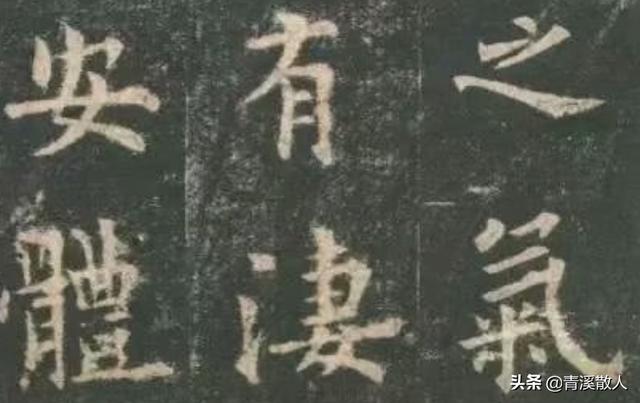 之氣
有淒
安體
头条 @青溪散人